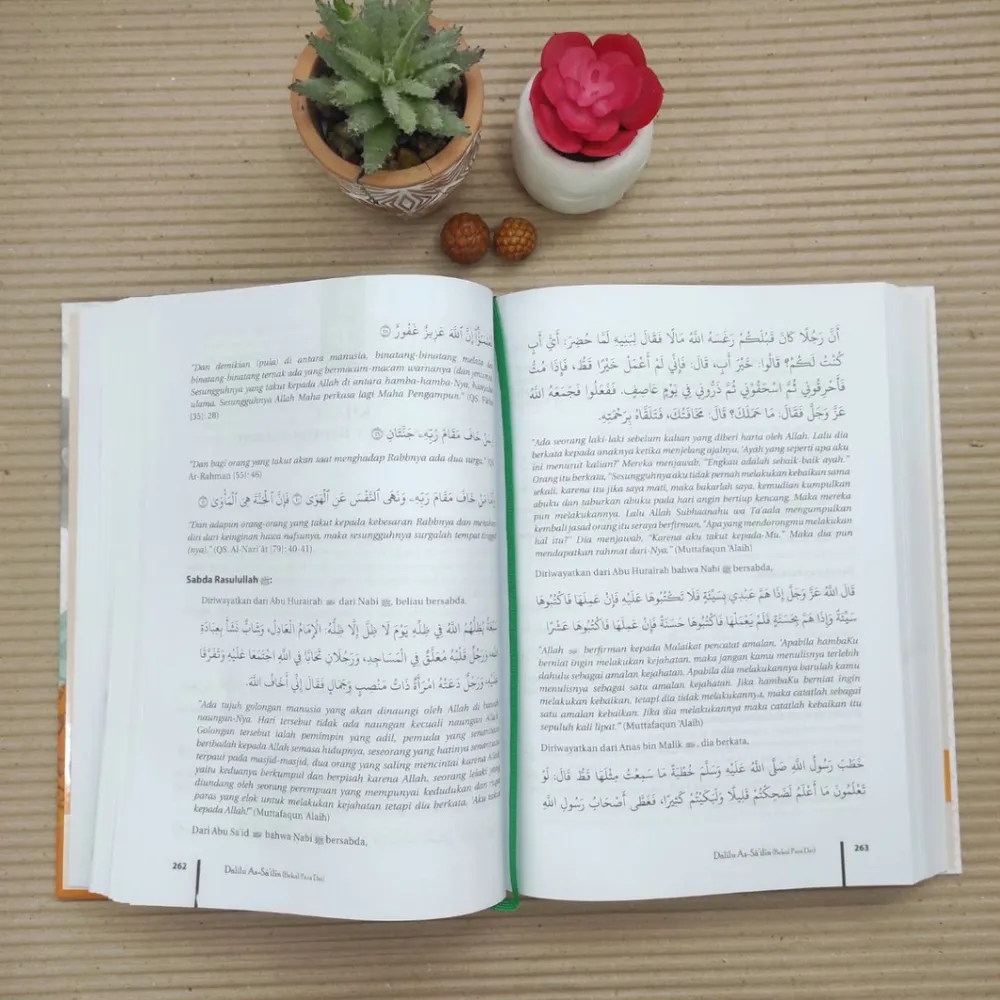 إِنَّ ٱللَّهَ عَزِيزٌ غَفُورٌ ۝٢٨
"Dan demikian (pula) di antara manusia, binatang-binatang melata dan
binatang-binatang ternak ada yang bermacam-macam warnanya (dan jenisnya).
Sesungguhnya yang takut kepada Allah di antara hamba-hamba-Nya, hanyalah
ulama. Sesungguhnya Allah Maha Perkasa lagi Maha Pengampun." (QS.
(35): 28)
خَافَ مَقَامَ رَبِّهِۦ جَنَّتَانِ
"Dan bagi orang yang takut akan saat menghadap Rabbnya ada dua surga." (QS.
Ar-Rahman (55): 46)
مَنْ خَافَ مَقَامَ رَبِّهِۦ وَنَهَى ٱلنَّفْسَ عَنِ ٱلْهَوَىٰ ۝٤٠ فَإِنَّ ٱلْجَنَّةَ هِىَ ٱلْمَأْوَىٰ ۝٤١
"Dan adapun orang-orang yang takut kepada kebesaran Rabbnya dan menahan
diri dari keinginan hawa nafsunya, maka sesungguhnya surgalah tempat tinggal
(nya)." (QS. Al-Nazi'ât (79): 40-41)
Sabda Rasulullah ﷺ:
Diriwayatkan dari Abu Hurairah dari Nabi ﷺ, beliau bersabda,
سَبْعَةٌ يُظِلُّهُمُ اللَّهُ فِي ظِلِّهِ يَوْمَ لَا ظِلَّ إِلَّا ظِلُّهُ: الْإِمَامُ الْعَادِلُ، وَشَابٌّ نَشَأَ بِعِبَادَةِ
اللَّهِ، وَرَجُلٌ قَلْبُهُ مُعَلَّقٌ فِي الْمَسَاجِدِ، وَرَجُلَانِ تَحَابَّا فِي اللَّهِ اجْتَمَعَا عَلَيْهِ وَتَفَرَّقَا
عَلَيْهِ، وَرَجُلٌ دَعَتْهُ امْرَأَةٌ ذَاتُ مَنْصِبٍ وَجَمَالٍ فَقَالَ إِنِّي أَخَافُ اللَّهَ.
"Ada tujuh golongan manusia yang akan dinaungi oleh Allah di bawah
naungan-Nya. Hari tersebut tidak ada naungan kecuali naungan Allah.
Golongan tersebut ialah pemimpin yang adil, pemuda yang senantiasa
beribadah kepada Allah semasa hidupnya, seseorang yang hatinya senantiasa
terpaut pada masjid-masjid, dua orang yang saling mencintai karena Allah
yaitu keduanya berkumpul dan berpisah karena Allah, seorang lelaki yang
diundang oleh seorang perempuan yang mempunyai kedudukan dan rupa
paras yang elok untuk melakukan kejahatan tetapi dia berkata, 'Aku takut
kepada Allah!'" (Muttafaqun 'Alaih)
Dari Abu Sa'id bahwa Nabi ﷺ bersabda,
262 Dalilu As-Sâ'ilin (Bekal Para Dai)
أَنَّ رَجُلًا كَانَ قَبْلَكُمْ رَغَسَهُ اللَّهُ مَالًا فَقَالَ لِبَنِيهِ لَمَّا حُضِرَ: أَيَّ أَبٍ
كُنْتُ لَكُمْ؟ قَالُوا: خَيْرَ أَبٍ، قَالَ: فَإِنِّي لَمْ أَعْمَلْ خَيْرًا قَطُّ، فَإِذَا مُتُّ
فَأَحْرِقُونِي ثُمَّ اسْحَقُونِي ثُمَّ ذَرُّونِي فِي يَوْمٍ عَاصِفٍ. فَفَعَلُوا فَجَمَعَهُ اللَّهُ
عَزَّ وَجَلَّ فَقَالَ: مَا حَمَلَكَ؟ قَالَ: مَخَافَتُكَ، فَتَلَقَّاهُ بِرَحْمَتِهِ.
"Ada seorang laki-laki sebelum kalian yang diberi harta oleh Allah. Lalu dia
berkata kepada anaknya ketika menjelang ajalnya, 'Ayah yang seperti apa aku
ini menurut kalian?' Mereka menjawab, "Engkau adalah sebaik-baik ayah."
Orang itu berkata, "Sesungguhnya aku tidak pernah melakukan kebaikan sama
sekali, karena itu jika saya mati, maka bakarlah saya, kemudian kumpulkan
abuku dan taburkan abuku pada hari angin bertiup kencang. Maka mereka
pun melakukannya. Lalu Allah Subhaanahu wa Ta'aala mengumpulkan
kembali jasad orang itu seraya berfirman, "Apa yang mendorongmu melakukan
hal itu?" Dia menjawab, "Karena aku takut kepada-Mu." Maka dia pun
mendapatkan rahmat dari-Nya." (Muttafaqun 'Alaih)
Diriwayatkan dari Abu Hurairah bahwa Nabi ﷺ bersabda,
قَالَ اللَّهُ عَزَّ وَجَلَّ إِذَا هَمَّ عَبْدِي بِسَيِّئَةٍ فَلَا تَكْتُبُوهَا عَلَيْهِ فَإِنْ عَمِلَهَا فَاكْتُبُوهَا
سَيِّئَةً وَإِذَا هَمَّ بِحَسَنَةٍ فَلَمْ يَعْمَلْهَا فَاكْتُبُوهَا حَسَنَةً فَإِنْ عَمِلَهَا فَاكْتُبُوهَا عَشْرًا
"Allah berfirman kepada Malaikat pencatat amalan, 'Apabila hambaKu
berniat ingin melakukan kejahatan, maka jangan kamu menulisnya terlebih
dahulu sebagai amalan kejahatan. Apabila dia melakukannya barulah kamu
menulisnya sebagai satu amalan kejahatan. Jika hambaKu berniat ingin
melakukan kebaikan, tetapi dia tidak melakukannya, maka catatlah sebagai
satu amalan kebaikan. Jika dia melakukannya maka catatlah kebaikan itu
sepuluh kali lipat.'" (Muttafaqun 'Alaih)
Diriwayatkan dari Anas bin Malik, dia berkata,
خَطَبَ رَسُولُ اللَّهِ صَلَّى اللَّهُ عَلَيْهِ وَسَلَّمَ خُطْبَةً مَا سَمِعْتُ مِثْلَهَا قَطُّ قَالَ: لَوْ
تَعْلَمُونَ مَا أَعْلَمُ لَضَحِكْتُمْ قَلِيلًا وَلَبَكَيْتُمْ كَثِيرًا، فَغَطَّى أَصْحَابُ رَسُولِ اللَّهِ
Dalilu As-Sâ'ilin (Bekal Para Dai) 263